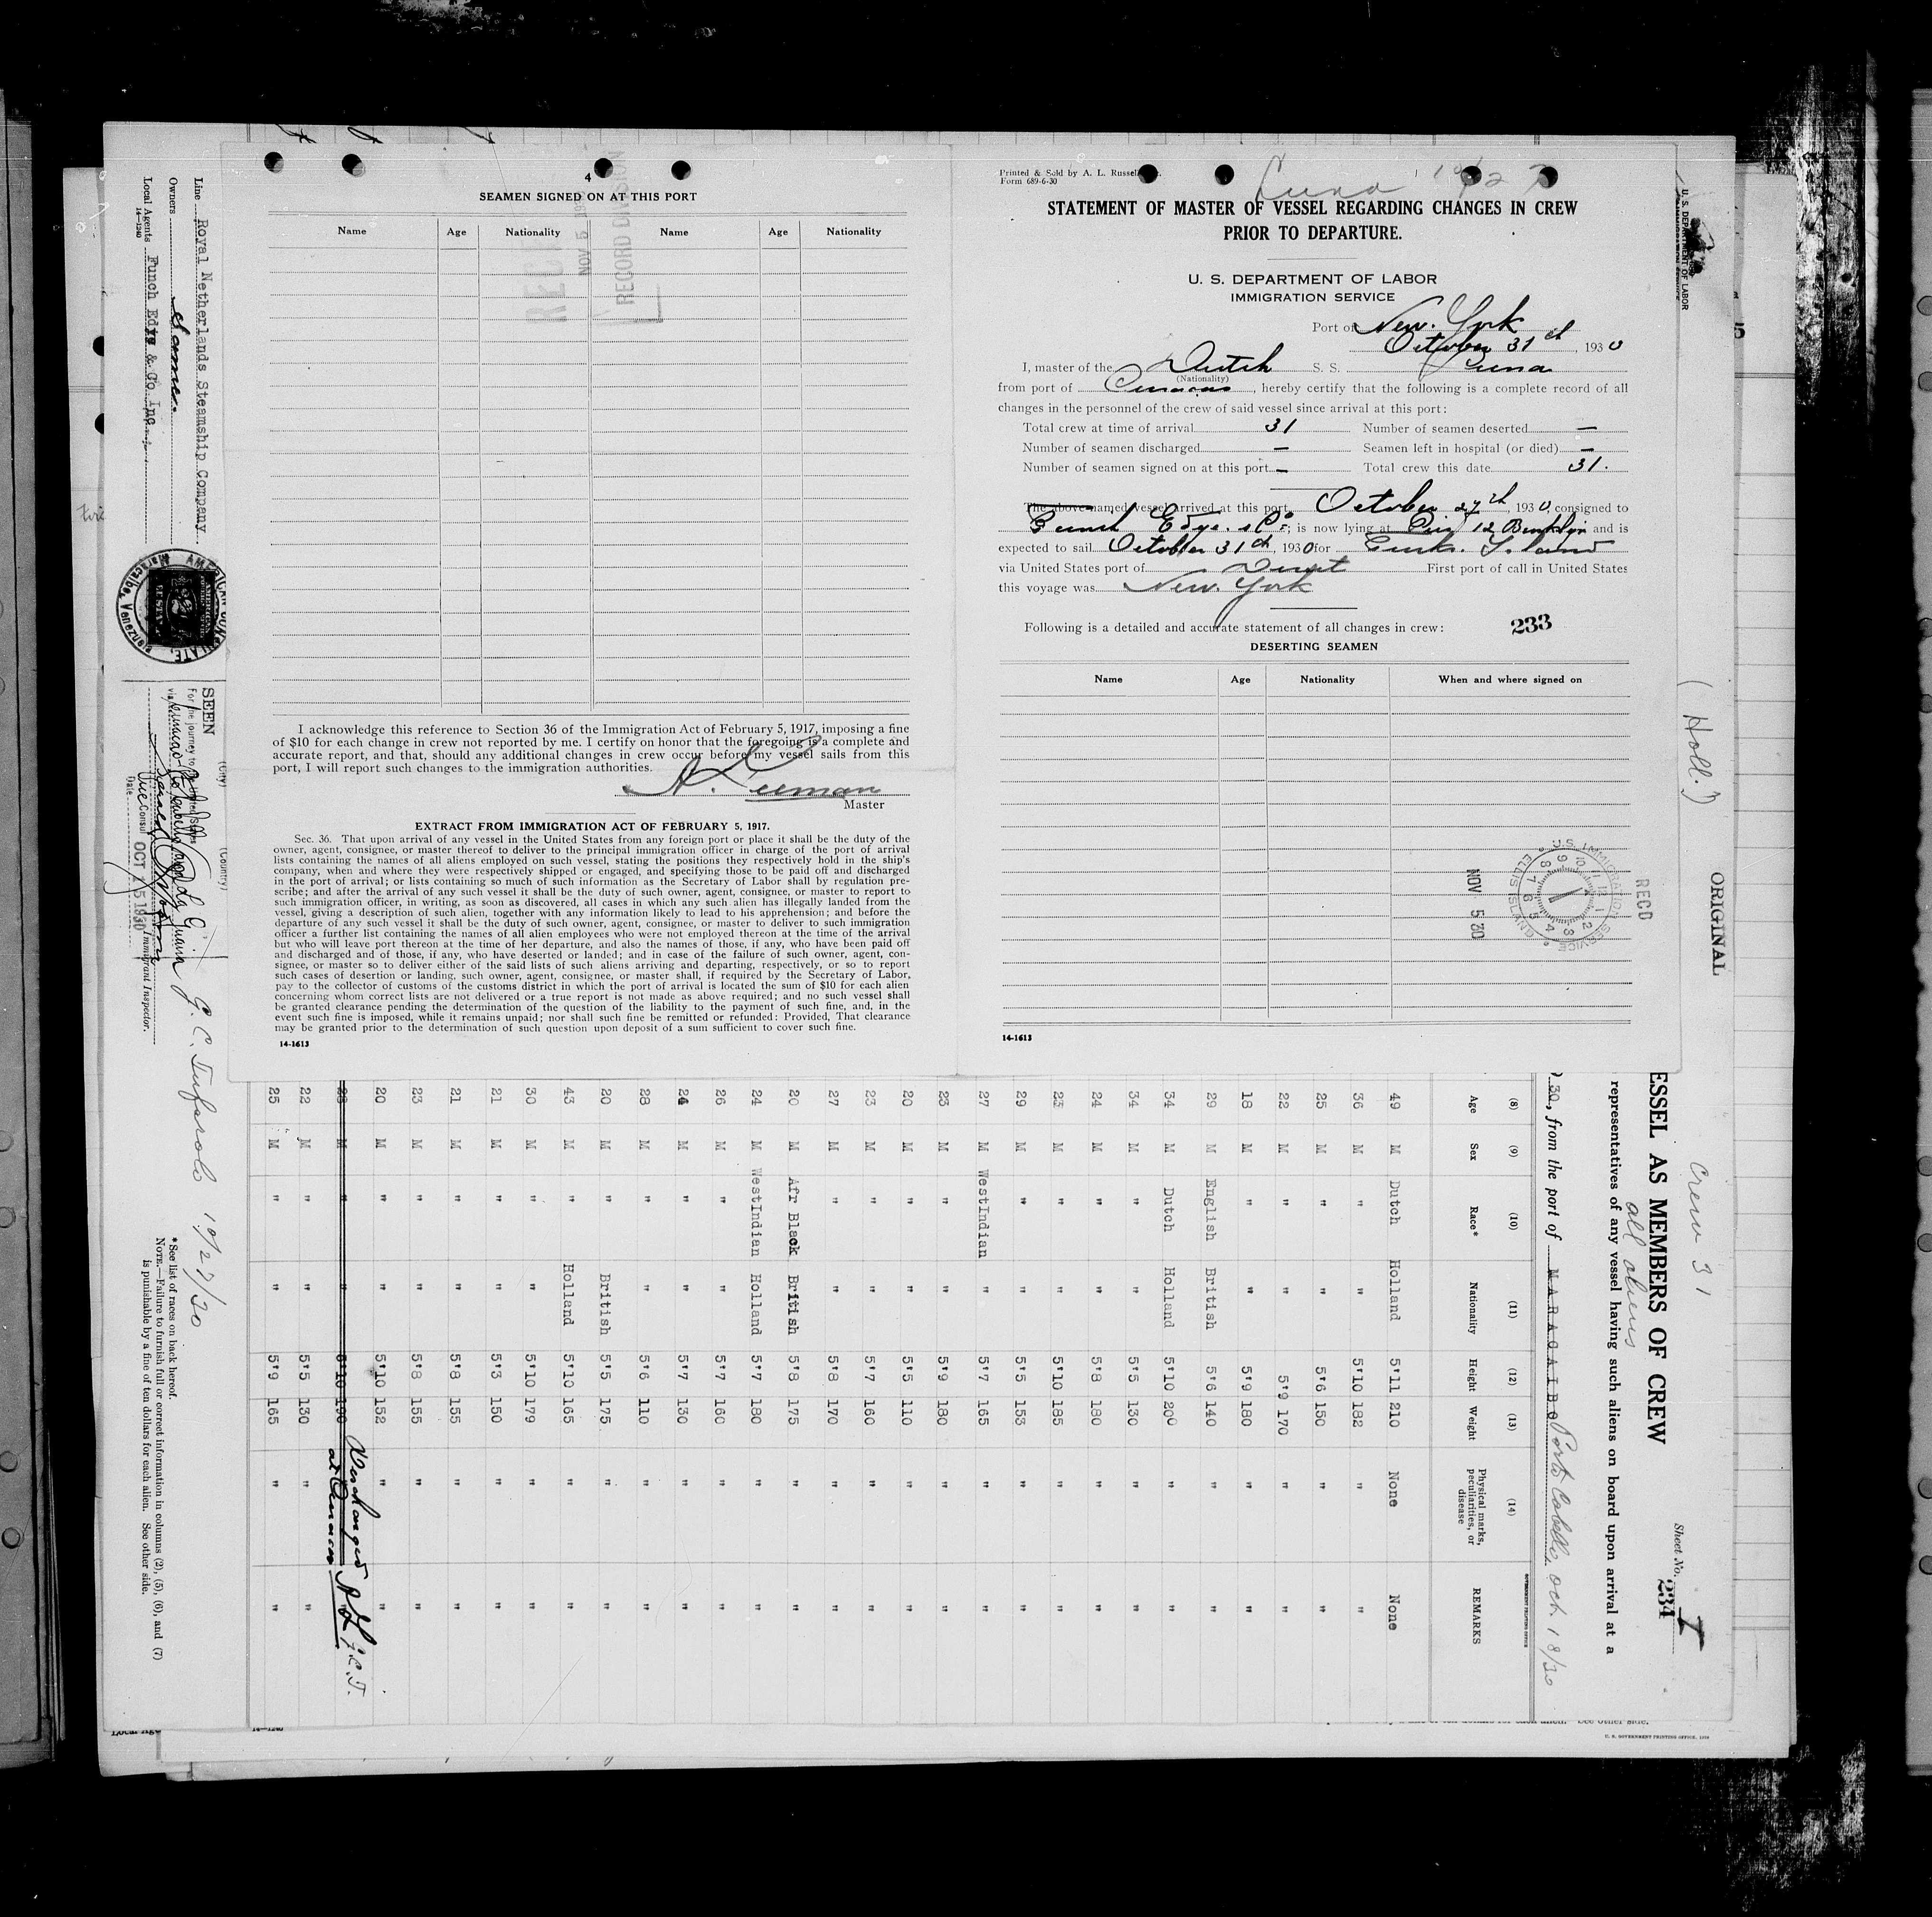 4
SEAMEN SIGNED ON AT THIS PORT
Name Age Nationality Name Age Nationality
REC
NOV 5
RECORD DIVISION
I acknowledge this reference to Section 36 of the Immigration Act of February 5, 1917, imposing a fine
of $10 for each change in crew not reported by me. I certify on honor that the foregoing is a complete and
accurate report, and that, should any additional changes in crew occur before my vessel sails from this
port, I will report such changes to the immigration authorities.
Master
EXTRACT FROM IMMIGRATION ACT OF FEBRUARY 5, 1917.
Sec. 36. That upon arrival of any vessel in the United States from any foreign port or place it shall be the duty of the
owner, agent, consignee, or master thereof to deliver to the principal immigration officer in charge of the port of arrival
lists containing the names of all aliens employed on such vessel, stating the positions they respectively hold in the ship's
company, when and where they were respectively shipped or engaged, and specifying those to be paid off and discharged
in the port of arrival; or lists containing so much of such information as the Secretary of Labor shall by regulation pre-
scribe; and after the arrival of any such vessel it shall be the duty of such owner, agent, consignee, or master to report to
such immigration officer, in writing, as soon as discovered, all cases in which any such alien has illegally landed from the
vessel, giving a description of such alien, together with any information likely to lead to his apprehension; and before the
departure of any such vessel it shall be the duty of such owner, agent, consignee, or master to deliver to such immigration
officer a further list containing the names of all alien employees who were not employed thereon at the time of the arrival
but who will leave port thereon at the time of her departure, and also the names of those, if any, who have been paid off
and discharged and of those, if any, who have deserted or landed; and in case of the failure of such owner, agent, con-
signee, or master so to deliver either of the said lists of such aliens arriving and departing, respectively, or so to report
such cases of desertion or landing, such owner, agent, consignee, or master shall, if required by the Secretary of Labor,
pay to the collector of customs of the customs district in which the port of arrival is located the sum of $10 for each alien
concerning whom correct lists are not delivered or a true report is not made as above required; and no such vessel shall
be granted clearance pending the determination of the question of the liability to the payment of such fine, and, in the
event such fine is imposed, while it remains unpaid; nor shall such fine be remitted or refunded: Provided, That clearance
may be granted prior to the determination of such question upon deposit of a sum sufficient to cover such fine.
14-1613
Printed & Sold by A. L. Russell
Form 689-6-30
Luna 10/27
STATEMENT OF MASTER OF VESSEL REGARDING CHANGES IN CREW
PRIOR TO DEPARTURE.
U. S. DEPARTMENT OF LABOR
IMMIGRATION SERVICE
Port of New York
October 31 1930
I, master of the Dutch S. S. Luna
(Nationality)
from port of Curacao, hereby certify that the following is a complete record of all
changes in the personnel of the crew of said vessel since arrival at this port:
Total crew at time of arrival 31 Number of seamen deserted —
Number of seamen discharged — Seamen left in hospital (or died) —
Number of seamen signed on at this port — Total crew this date 31.
The above named vessel arrived at this port October 27th, 1930, consigned to
Funch Edye & Co; is now lying at Pier 12 Brooklyn and is
expected to sail October 31, 1930 for Turks Island
via United States port of Direct First port of call in United States
this voyage was New York
Following is a detailed and accurate statement of all changes in crew: 233
DESERTING SEAMEN
Name Age Nationality When and where signed on
NOV 5 30
U.S. IMMIGRATION SERVICE ELLIS ISLAND
REC'D
14-1613
U. S. DEPARTMENT OF LABOR
(Holl.)
ORIGINAL
Crew 31
all aliens
Sheet No. I
234
ESSEL AS MEMBERS OF CREW
representatives of any vessel having such aliens on board upon arrival at a
30, from the port of MARACAIBO Porto Cabello, Oct. 18/30
(8) (9) (10) (11) (12) (13) (14)
Age Sex Race* Nationality Height Weight Physical marks, peculiarities, or disease REMARKS
49 M Dutch Holland 5'11 210 None None
36 M " " 5'10 182 " "
25 M " " 5'6 150 " "
22 M " " 5'9 170 " "
18 M " " 5'9 180 " "
29 M English British 5'6 140 " "
34 M Dutch Holland 5'10 200 " "
34 M " " 5'5 130 " "
24 M " " 5'8 180 " "
23 M " " 5'10 185 " "
29 M " " 5'5 153 " "
27 M WestIndian " 5'7 165 " "
23 M " " 5'9 180 " "
20 M " " 5'5 110 " "
23 M " " 5'7 160 " "
27 M " " 5'8 170 " "
20 M Afr Black British 5'8 175 " "
24 M WestIndian Holland 5'7 180 " "
26 M " " 5'7 160 " "
24 M " " 5'7 130 " "
28 M " " 5'6 110 " "
20 M " British 5'5 175 " "
43 M " Holland 5'10 165 " "
30 M " " 5'10 179 " "
21 M " " 5'3 150 " "
21 M " " 5'8 155 " "
23 M " " 5'8 155 " "
20 M " " 5'10 152 " "
28 M " " 5'10 190 " Discharged at Curacao J.C.T.
22 M " " 5'5 130 " "
25 M " " 5'9 165 " "
Line Royal Netherlands Steamship Company
Owners Same.
Local Agents Funch Edye & Co. Inc.
14-1240
AMERICAN CONSULATE, Maracaibo, Venezuela
SEEN
(City) (Country)
For the journey to the United States
via
Vice Consul
Date OCT 15 1930
Immigrant Inspector.
10/27/30
* See list of races on back hereof.
NOTE.—Failure to furnish full or correct information in columns (2), (5), (6), and (7)
is punishable by a fine of ten dollars for each alien. See other side.
U. S. GOVERNMENT PRINTING OFFICE